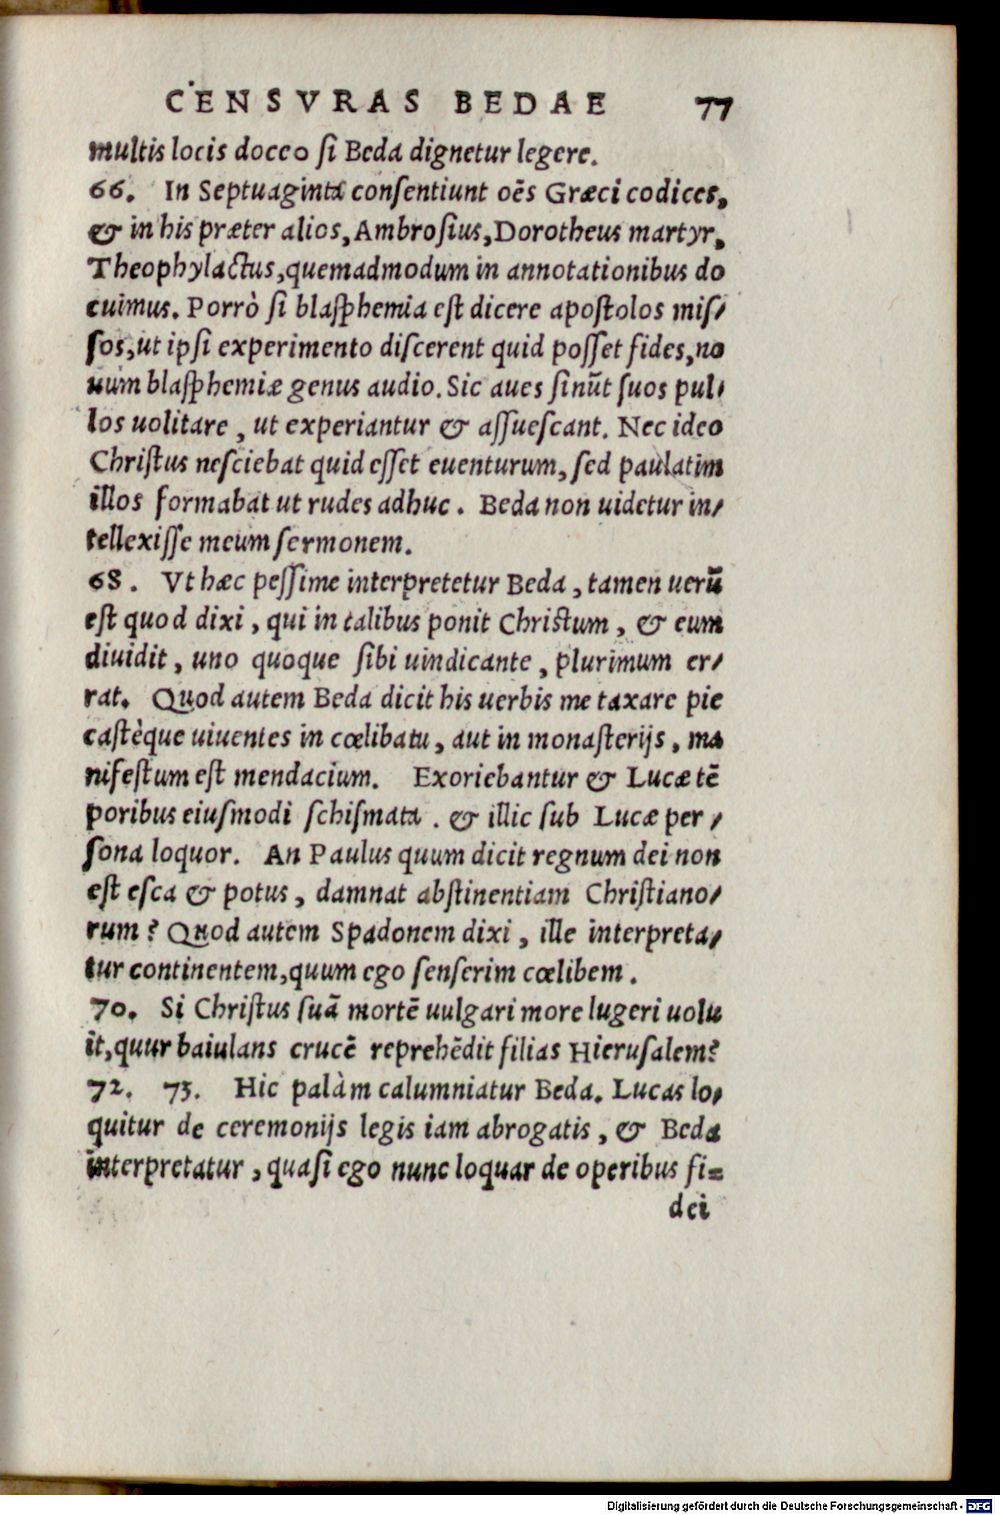 CENSVRAS BEDAE 77
multis locis doceo si Beda dignetur legere.
66. In Septuaginta consentiunt oēs Græci codices,
& in his præter alios, Ambrosius, Dorotheus martyr,
Theophylactus, quemadmodum in annotationibus do
cuimus. Porrò si blasphemia est dicere apostolos mis/
sos, ut ipsi experimento discerent quid posset fides, no
uum blasphemiæ genus audio. Sic aues sinūt suos pul/
los uolitare, ut experiantur & assuescant. Nec ideo
Christus nesciebat quid esset euenturum, sed paulatim
illos formabat ut rudes adhuc. Beda non uidetur in/
tellexisse meum sermonem.
68. Vt hæc pessime interpretetur Beda, tamen uerū
est quod dixi, qui in talibus ponit Christum, & eum
diuidit, uno quoque sibi uindicante, plurimum er/
rat. Quod autem Beda dicit his uerbis me taxare pie
castèque uiuentes in cœlibatu, aut in monasterijs, ma
nifestum est mendacium. Exoriebantur & Lucæ tē
poribus eiusmodi schismata. & illic sub Lucæ per/
sona loquor. An Paulus quum dicit regnum dei non
est esca & potus, damnat abstinentiam Christiano/
rum? Quod autem Spadonem dixi, ille interpreta/
tur continentem, quum ego senserim cœlibem.
70. Si Christus suā mortē uulgari more lugeri uolu
it, quur baiulans crucē reprehēdit filias Hierusalem?
72. 73. Hic palàm calumniatur Beda. Lucas lo/
quitur de ceremonijs legis iam abrogatis, & Beda
interpretatur, quasi ego nunc loquar de operibus fi=
dei
Digitalisierung gefördert durch die Deutsche Forschungsgemeinschaft - DFG